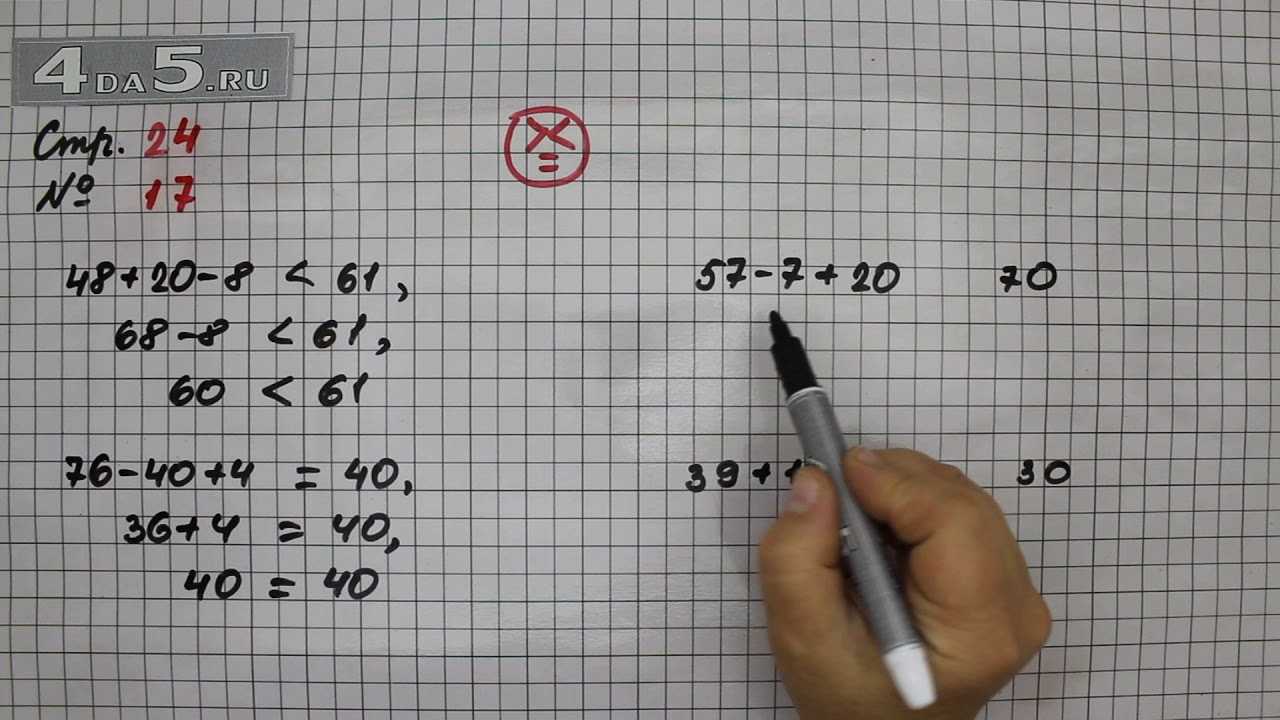 4DA5.RU
Стр. 24
№ 17
> < =
48+20-8 < 61,
68-8 < 61,
60 < 61
76-40+4 = 40,
36+4 = 40,
40 = 40
57-7+20 70
39+1 30